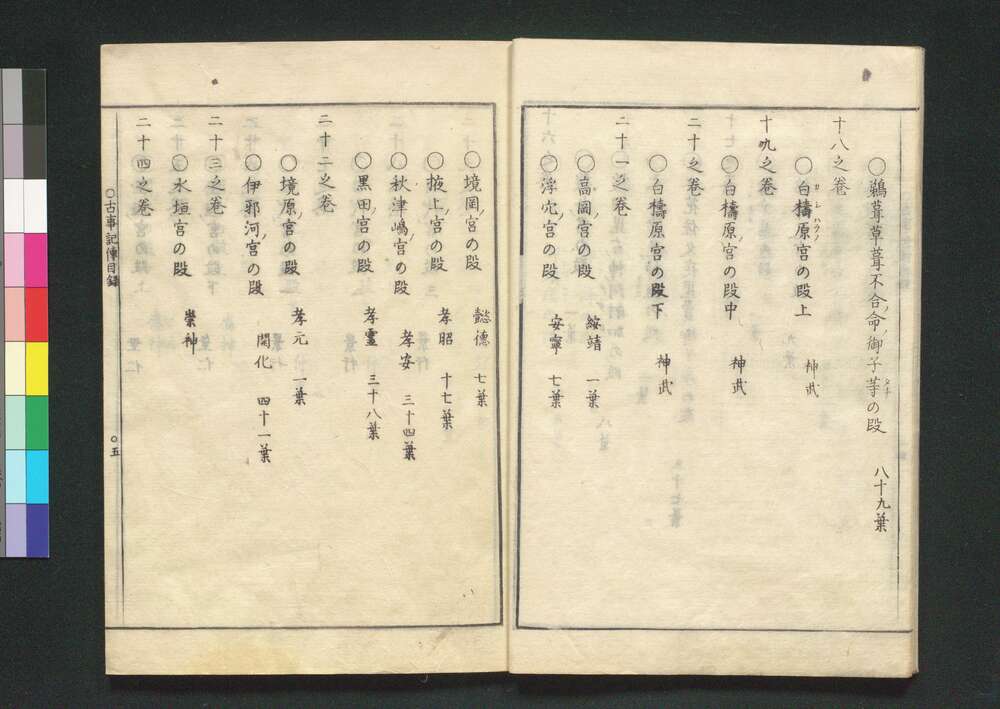 ○鵜葺草葺不合命ノ御子等タチの段 八十九葉
十八之巻
○白檮カシ原ハラノ宮の段上 神武
十九之巻
○白檮原ノ宮の段中 神武
二十之巻
○白檮原宮の段下 神武
二十一之巻
○高岡ノ宮の段 綏靖 一葉
○浮穴ノ宮の段 安寧 七葉
○境岡ノ宮の段 懿徳 七葉
○掖上ノ宮の段 孝昭 十七葉
○秋津嶋ノ宮の段 孝安 三十四葉
○黒田ノ宮の段 孝霊 三十八葉
二十二之巻
○境原ノ宮の段 孝元 一葉
○伊邪河ノ宮の段 開化 四十一葉
二十三之巻
○水垣宮の段 崇神
二十四之巻
○古事記傳目録 ○五